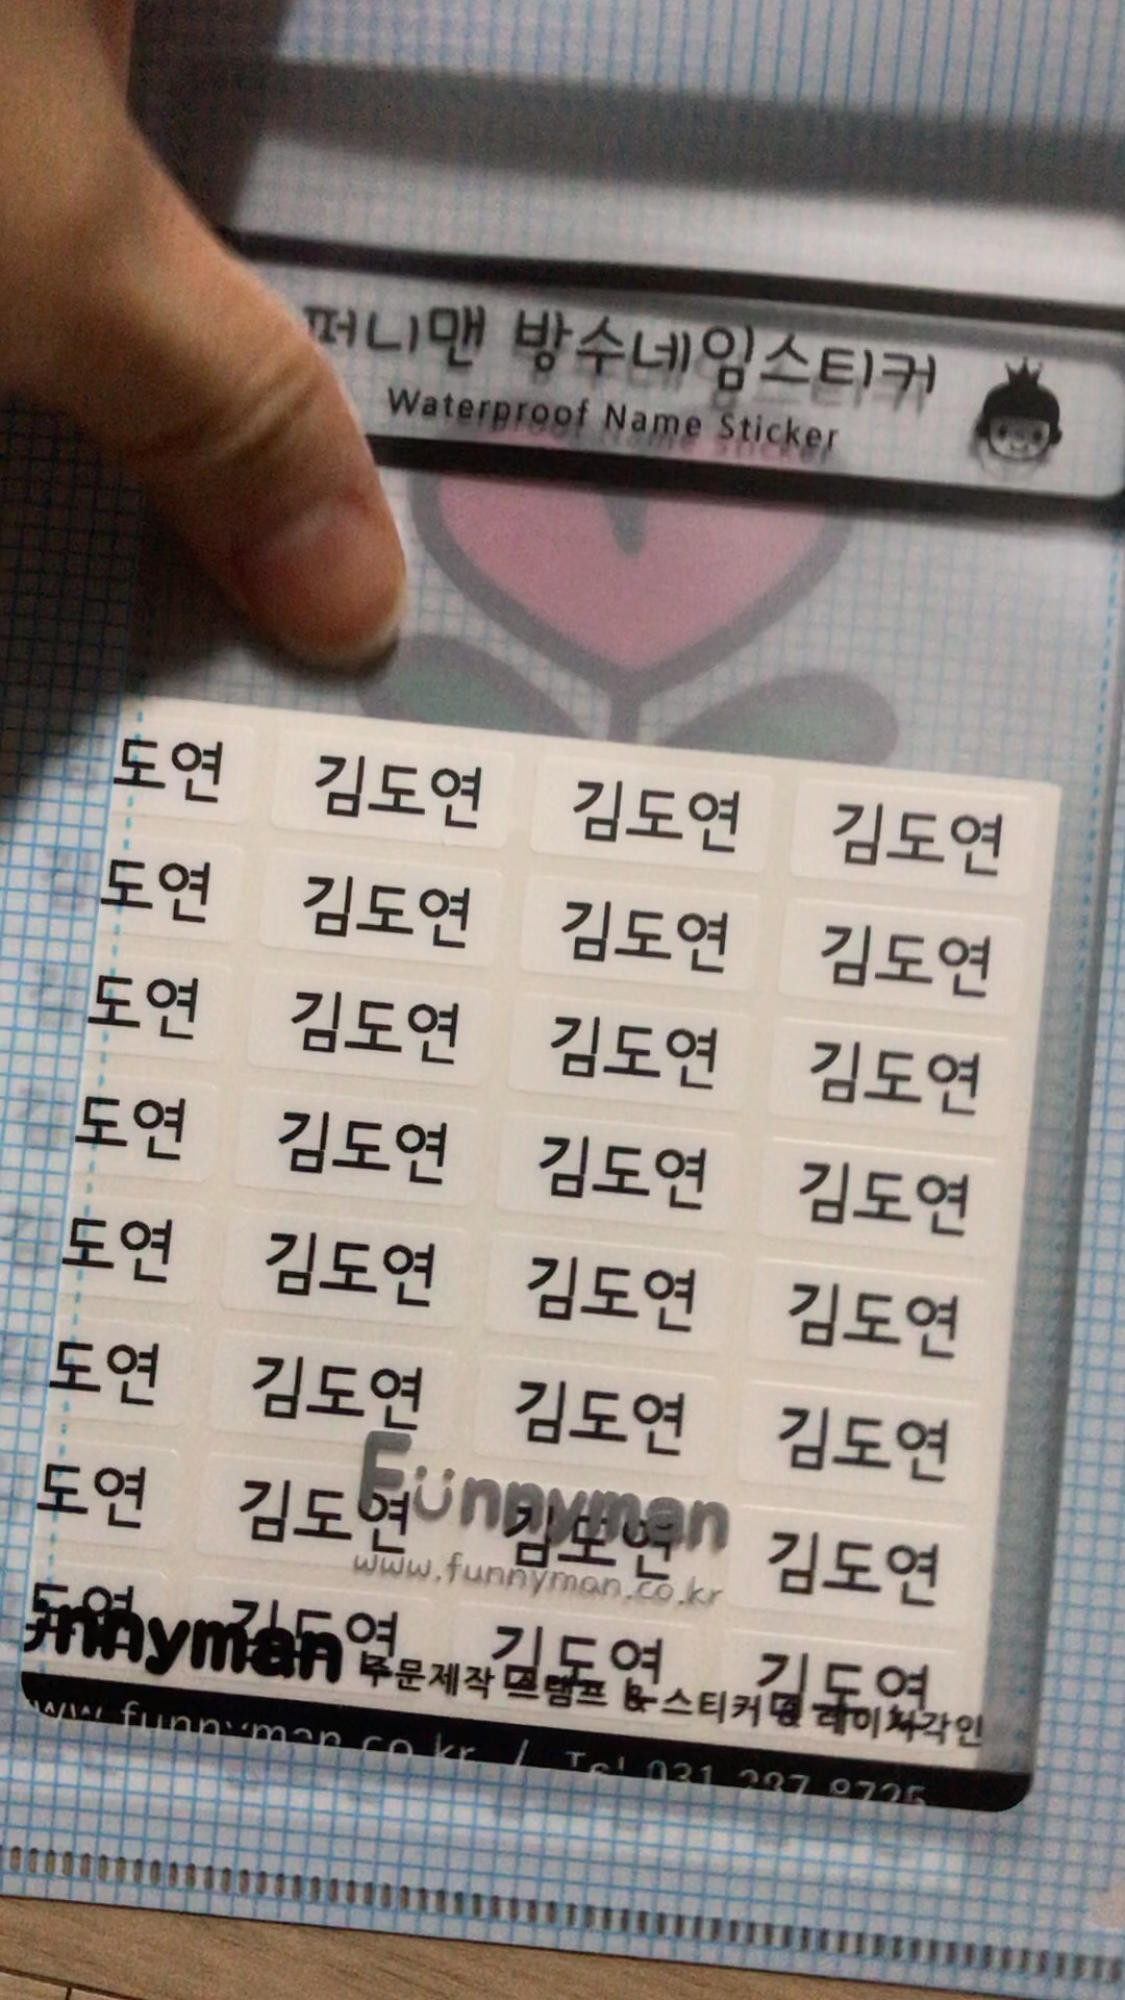 퍼니맨 방수네임스티커
Waterproof Name Sticker
도연 김도연 김도연 김도연
도연 김도연 김도연 김도연
도연 김도연 김도연 김도연
도연 김도연 김도연 김도연
도연 김도연 김도연 김도연
도연 김도연 김도연 김도연
도연 김도연 김도연 김도연
Funnyman
www.funnyman.co.kr
도연 김도연 김도연 김도연
nnyman 주문제작 스탬프 & 스티커 및 레이저각인
www.funnyman.co.kr / Tel 031